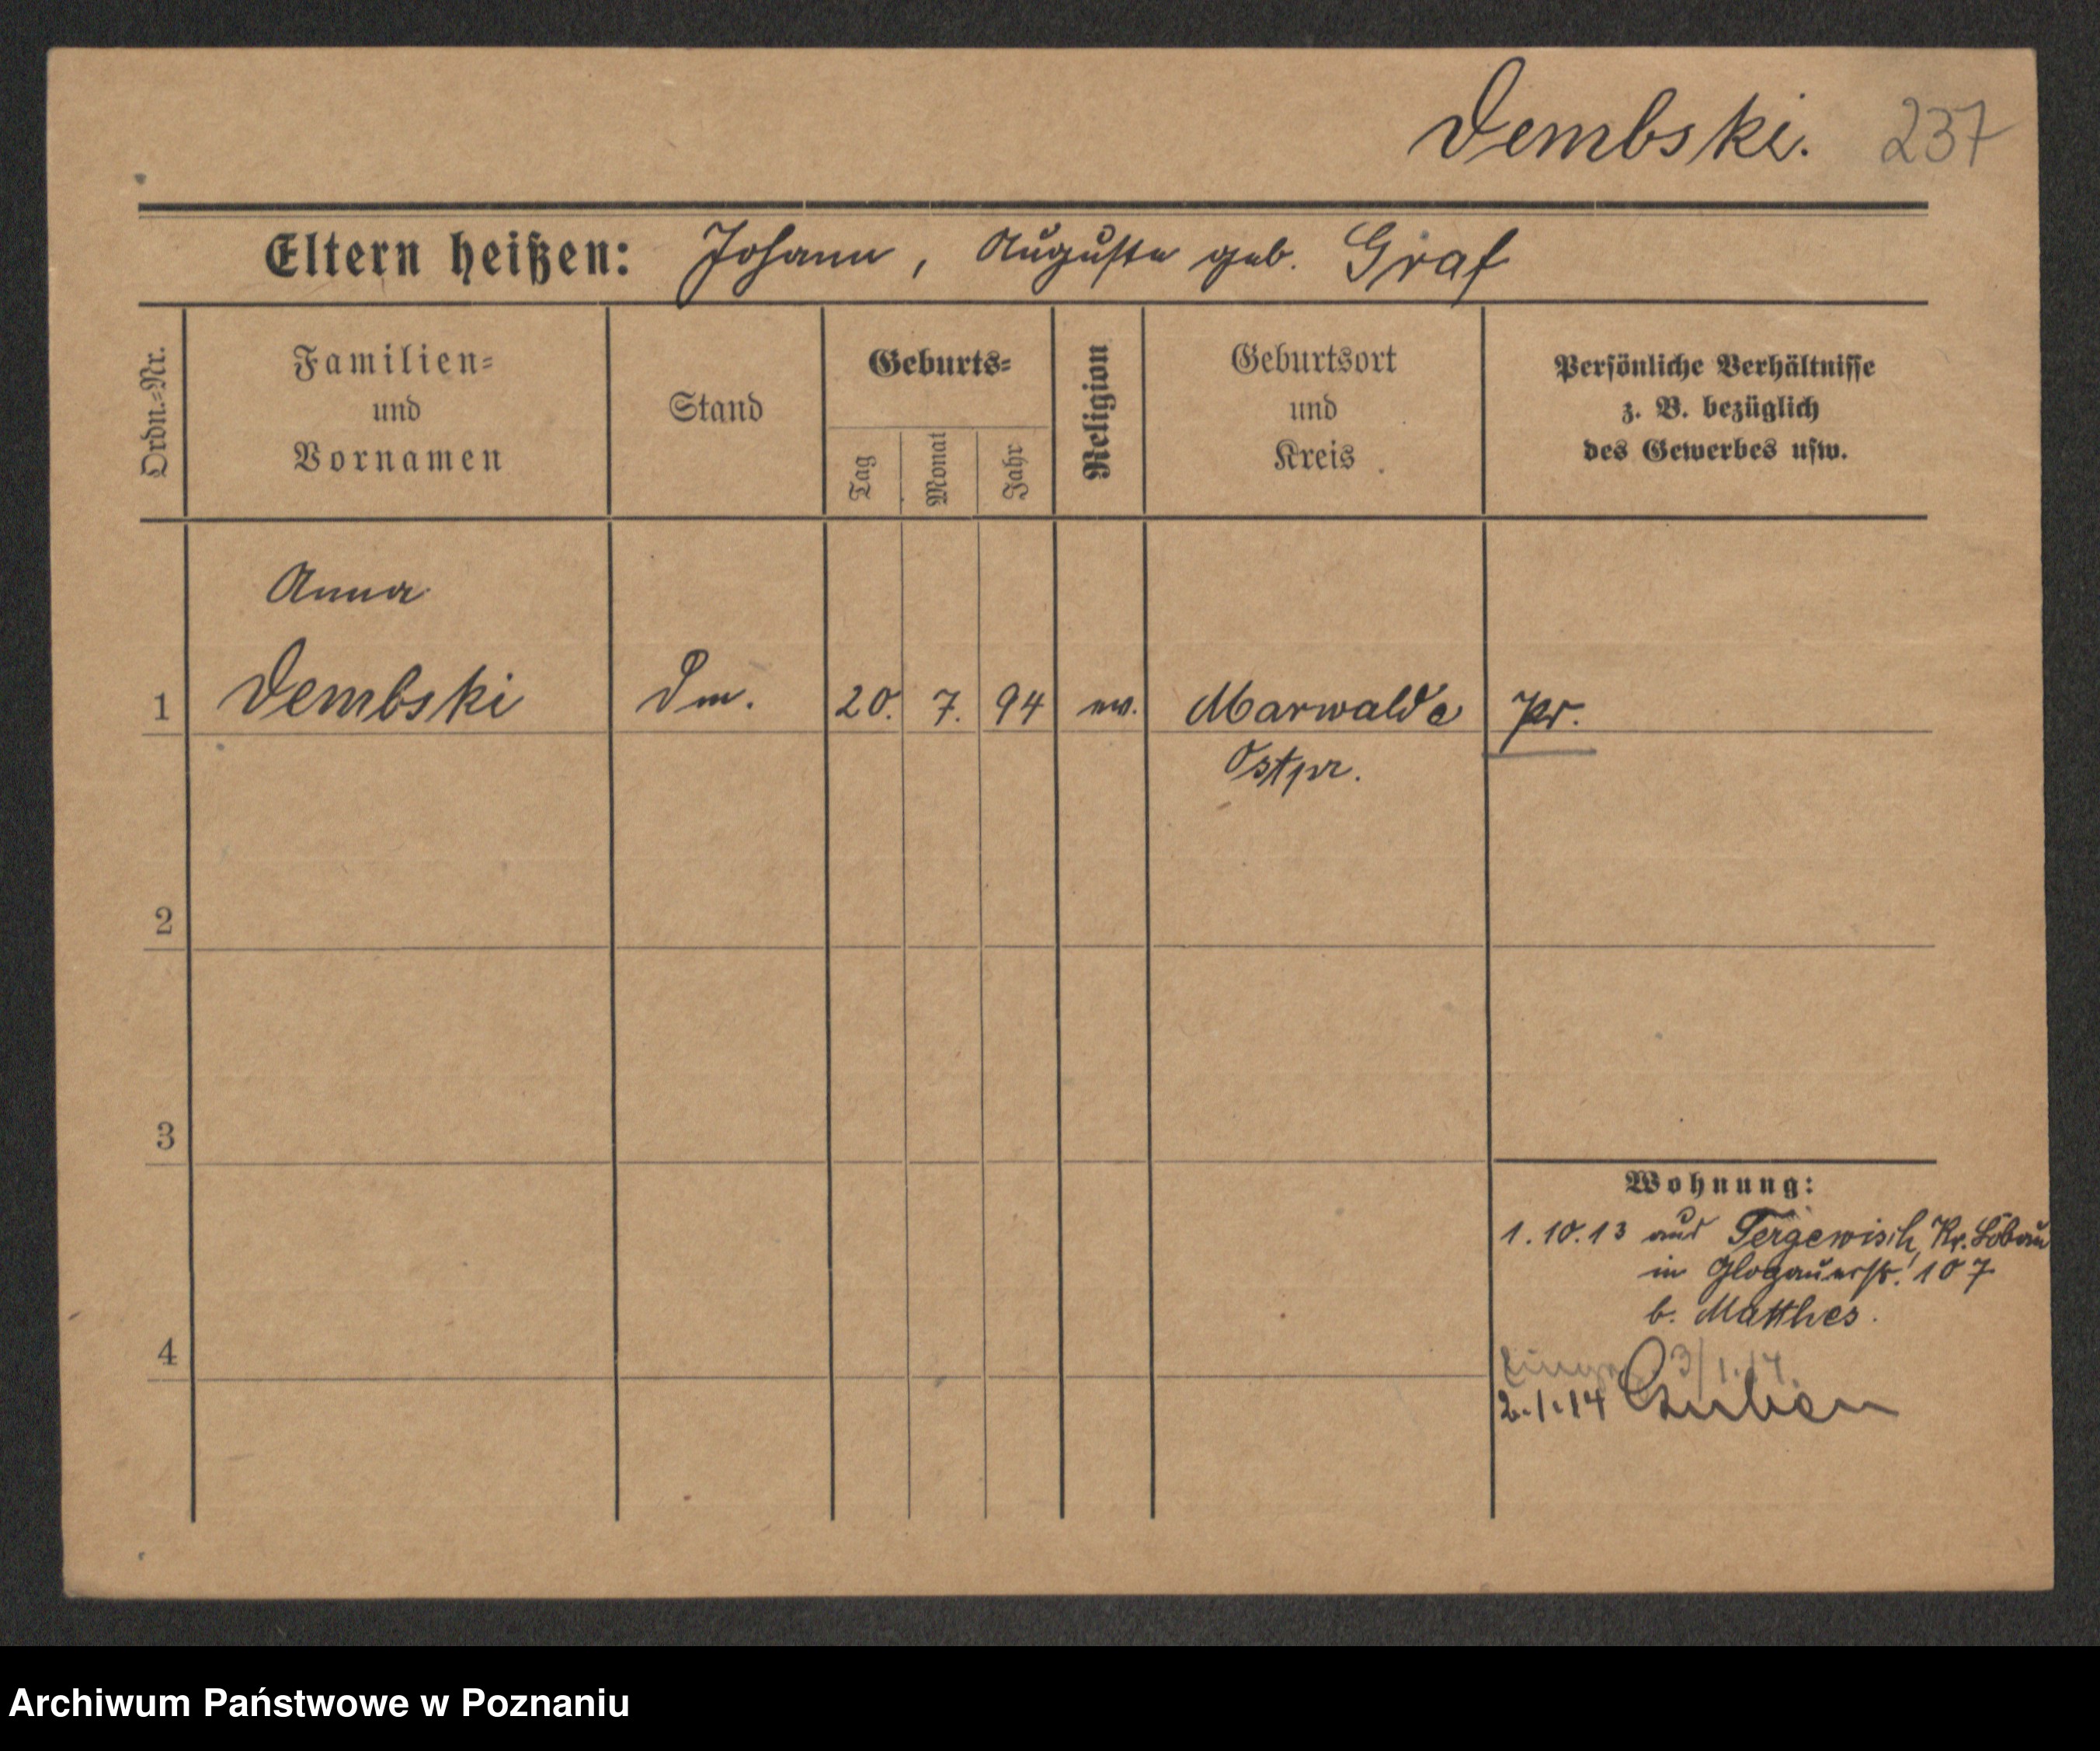 Dembski. 237
Eltern heißen: Johann, Auguste geb. Graf
Ordn.-Nr.
Familien- und Vornamen
Stand
Geburts-
Tag
Monat
Jahr
Religion
Geburtsort und Kreis
Persönliche Verhältnisse
z. B. bezüglich
des Gewerbes usw.
Anna
1 Dembski Dm. 20. 7. 94 ev. Marwalde Pr.
Ostpr.
2
3
Wohnung:
1.10.13 aus Tergewisch, Kr. Löbau
in Glogauerstr. 107
b. Matthes.
4
3/1.14.
2.1.14 Guben
Archiwum Państwowe w Poznaniu